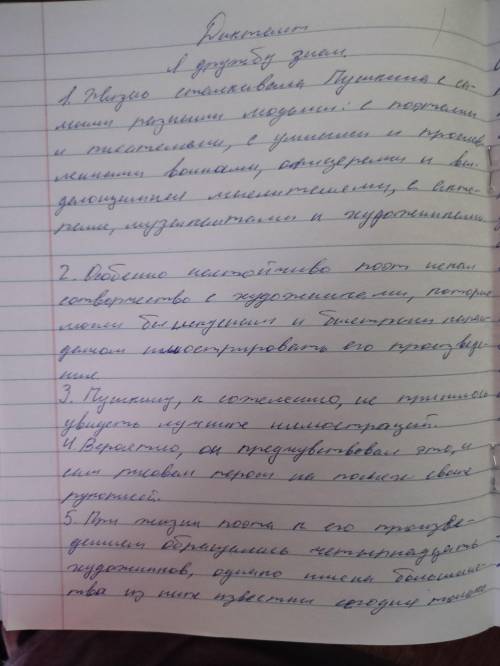 Диктант
Я дружбу знал.
1. Жизнь сталкивала Пушкина с са-
мыми разными людьми: с поэтами
и писателями, с умными и прослав-
ленными воинами, офицерами и вы-
дающимися мыслителями, с актё-
рами, музыкантами и художниками.
2. Особенно настойчиво поэт искал
сотворчество с художниками, которые
могли бы искусным и быстрым каран-
дашом иллюстрировать его произведе-
ния.
3. Пушкину, к сожелению, не пришлось
увидеть лучших иллюстраций.
4. Вероятно, он предчувствовал это, и
сам рисовал пером на полях своих
рукописей.
5. При жизни поэта к его произве-
дениям обращались четырнадцать
художников, однако имена большинс-
тва из них известны сегодня только